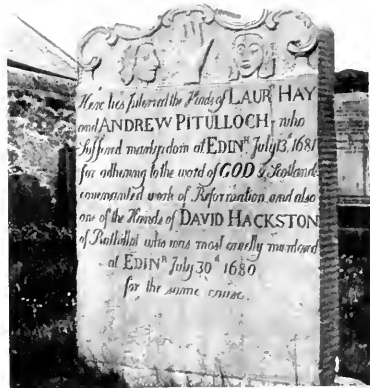 Here lies Interred the Heads of LAURᶜᵉ HAY
and ANDREW PITULLOCH, who
Suffered martyrdom at EDINᴿ July 13ᵗʰ 1681
for adhering to the word of GOD & Scotlands
covenanted work of Reformation and also
one of the Hands of DAVID HACKSTON
of Rathillet who was most cruelly murdered
at EDINᴿ July 30ᵗʰ 1680
for the same cause.